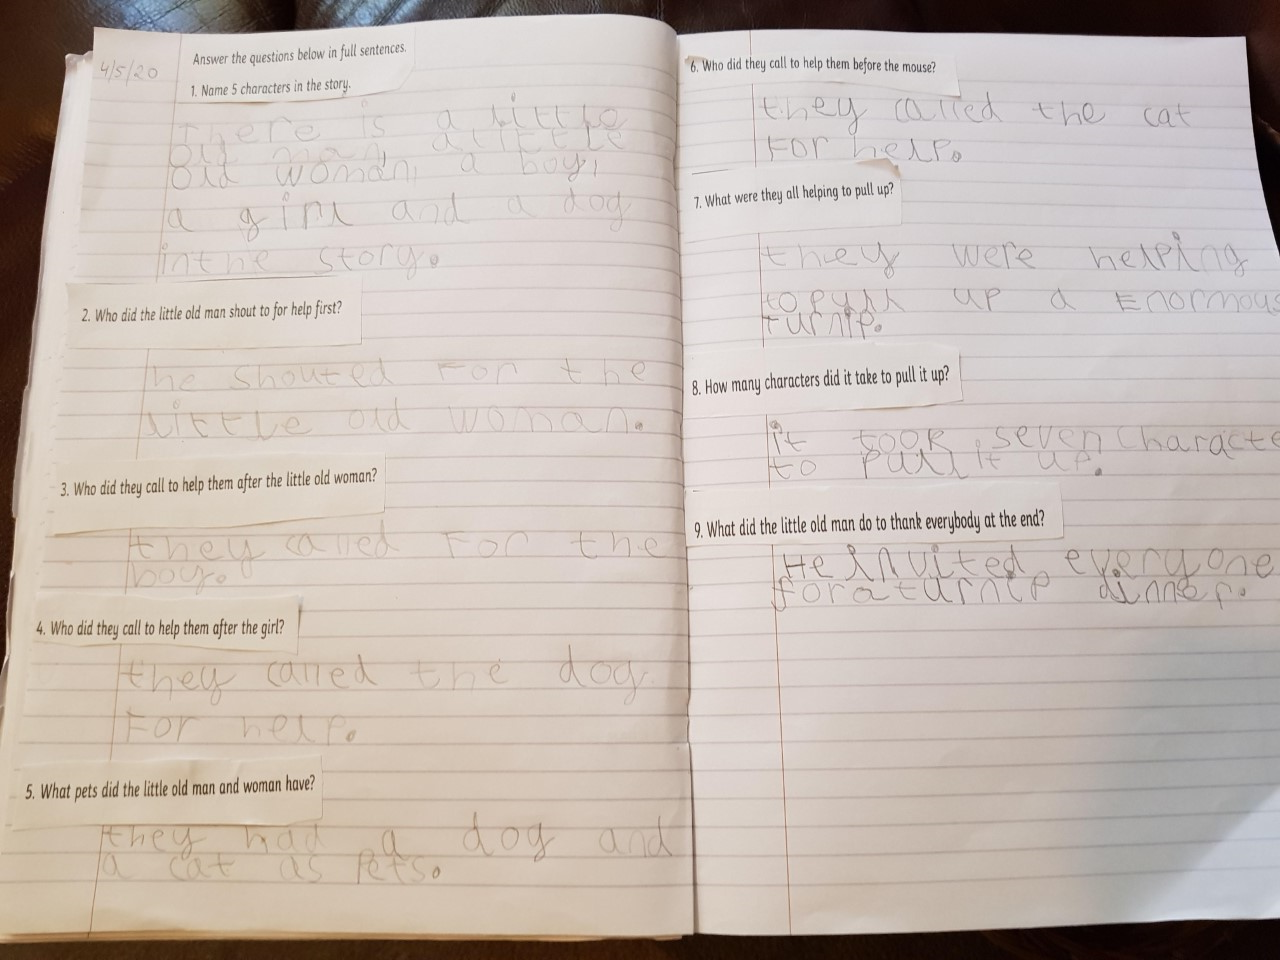 4/5/20
Answer the questions below in full sentences.
1. Name 5 characters in the story.
There is a little
old man, a little
old woman, a boy,
a girl and a dog
in the story.
2. Who did the little old man shout to for help first?
he shouted For the
little old woman.
3. Who did they call to help them after the little old woman?
they called For the
boy.
4. Who did they call to help them after the girl?
they called the dog
For help.
5. What pets did the little old man and woman have?
they had a dog and
a cat as Pets.
6. Who did they call to help them before the mouse?
they called the cat
For help.
7. What were they all helping to pull up?
they were helping
to pull up a Enormous
turnip.
8. How many characters did it take to pull it up?
it took seven Characte
to pull it up.
9. What did the little old man do to thank everybody at the end?
He invited everyone
for a turnip dinner.